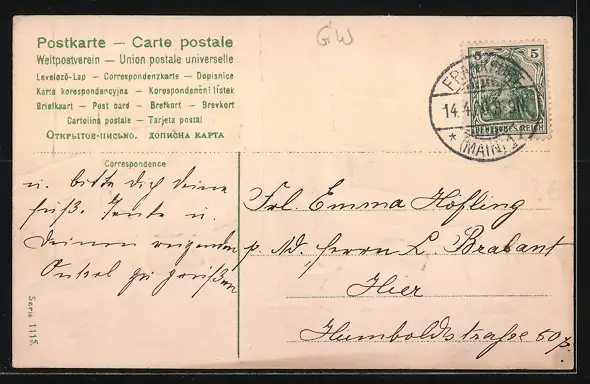 G.W
Postkarte — Carte postale
Weltpostverein — Union postale universelle
Levelező-Lap — Correspondenzkarte — Dopisnice
Karta korespondencyjna — Korespondenční lístek
Briefkaart — Post card — Brefkort — Brevkort
Cartolina postale — Tarjeta postal
Открытое-письмо. дописна карта
5
DEUTSCHES REICH
FRANKFURT
14.4
* (MAIN)
Correspondence
u. bitte dich deine
süß. Tante u.
deinen
Onkel zu grüßen
Frl. Emma Höfling
p. Ad. Herrn L. Brabant
Hier
Humboldtstraße 50 p.
Serie 1115.